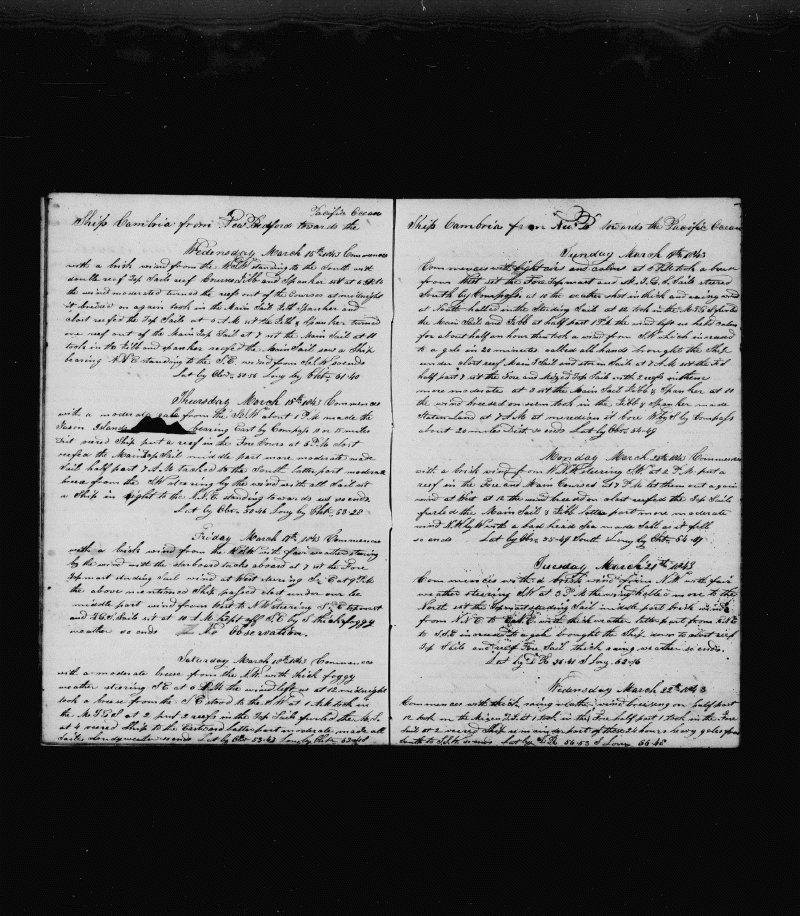 Pacific Ocean
Ship Cambria from New Bedford towards the
Wedensday March 15th 1843 Commences
with a brisk wind from the standing to the South with
double reef Top Sails reef Courses Jibb and Spanker set at
the wind moderated turned the reefs out of the Courses at midnight
it breezed on again took in the Main Sail Jibb Spanker and
close reefed the Top Sails at 6 A.M. set the Jibb & Spanker turned
one reef out of the Main Top Sail at 7 set the Main Sail at 11
took in the Jibb and spanker reefed the Main Sail saw a Ship
bearing N.N.E standing to the S.E. wind from so ends
Lat by Obv 51-56 Long by Chr 61-40
Thursday March 16th 1843 Commences
with a moderate gale from the S.W about 1 P.M made the
Jason Islands bearing East by Compass 8 or 10 miles
Dist wired Ship put a reef in the Fore Courses at 5 P.M Close
reefed the Main Top Sail middle part more moderate made
Sail half part 7 A.M tacked to the South latter part moderate
breeze from the S.W steering by the wind with all Sail set
a Ship in sight to the N.N.E. standing towards us so ends
Lat by Obv 50-46 Long by Chr 59-28
Friday March 17th 1843 Commences
with a brisk wind from the with fair weather steering
by the wind with the starboard tacks aboard at 7 set the Fore
Topmast studing Sail wind at West steering at 9 P.M
the above mentioned Ship passed close under our lee
middle part wind from West to N.W steering S.E Topmast
and T.G.S. Sails set at 10 A.M kept off S.E by S thick foggy
weather so ends No Observation
Saturday March 18th 1843 Commences
with a moderate breeze from the N.W with thick foggy
weather steering S E at 6 P.M the wind left us at 12 midnight
took a breeze from the S E stood to the S.W at 1 A.M took in
the M T G S at 2 put 2 reefs in the Top Sails furled the M.S.
at 4 wired Ship to the Eastward latter part moderate made all
Sail weather so ends Lat by Obv 53-43 Long by Chr
Ship Cambria from New B towards the Pacific Ocean
Sunday March 19th 1843
Commences with light airs and calms at 5 P.M took a breeze
from West set the Fore Topmast and M.T.G.S. Sails steered
South by Compass at 10 the weather shut in thick and raining wind
at North hauled in the Studing Sails at 12 took in the M.T.G.S furled
the Main Sail and Jibb at half part 1 P.M the wind left us held calm
for about half an hour then took a wind from S.W which increased
to a gale in 20 minutes called all hands brought the Ship
under close reef Main T Sail and storm Sails at 7 A.M set the F S
half part 7 set the Fore and Mizen Top Sail with 2 reefs in them
more moderate at 9 set the Main Sail Jibb & Spanker at 10
the wind breezed on again took in the Jibb & Spanker made
Staten Land at 7 A.M at meredian it bore W by S by Compass
about 20 miles Dist so ends Lat by Obv 54-49
Monday March 20th 1843 Commences
with a brisk wind from steering S.W. at 2 P.M put a
reef in the Fore and Main Courses at 7 P.M let them out again
wind at West at 12 the wind breezed on close reefed the Top Sails
furled the Main Sail & Jibb latter part more moderate
wind N.W by W with a bad head Sea made Sail as it fell
so ends Lat by Obv 55-49 South Long by Chr 64-47
Tuesday March 21st 1843
Commences with a brisk wind from N.W with fair
weather steering S.W at 3 P.M the wind hauled more to the
North set the Topmast studding Sail middle part brisk wind
from N.N.E to with thick weather latter part from
to S.S.E increased to a gale brought the Ship down to close reef
Top Sails and reef Fore Sail thick rainy weather so ends
Lat by D.R. 56-41 S Long 62-56
Wedensday March 22nd 1843
Commences with thick raining weather wind breezing on half part
12 took in the Mizen T.S. at 1 took in the Fore half part 1 took in the Fore
Sail at 2 wired Ship remainder part of these 24 hours heavy gales from
South to so ends Lat by D.R 56-53 S Long 66-46